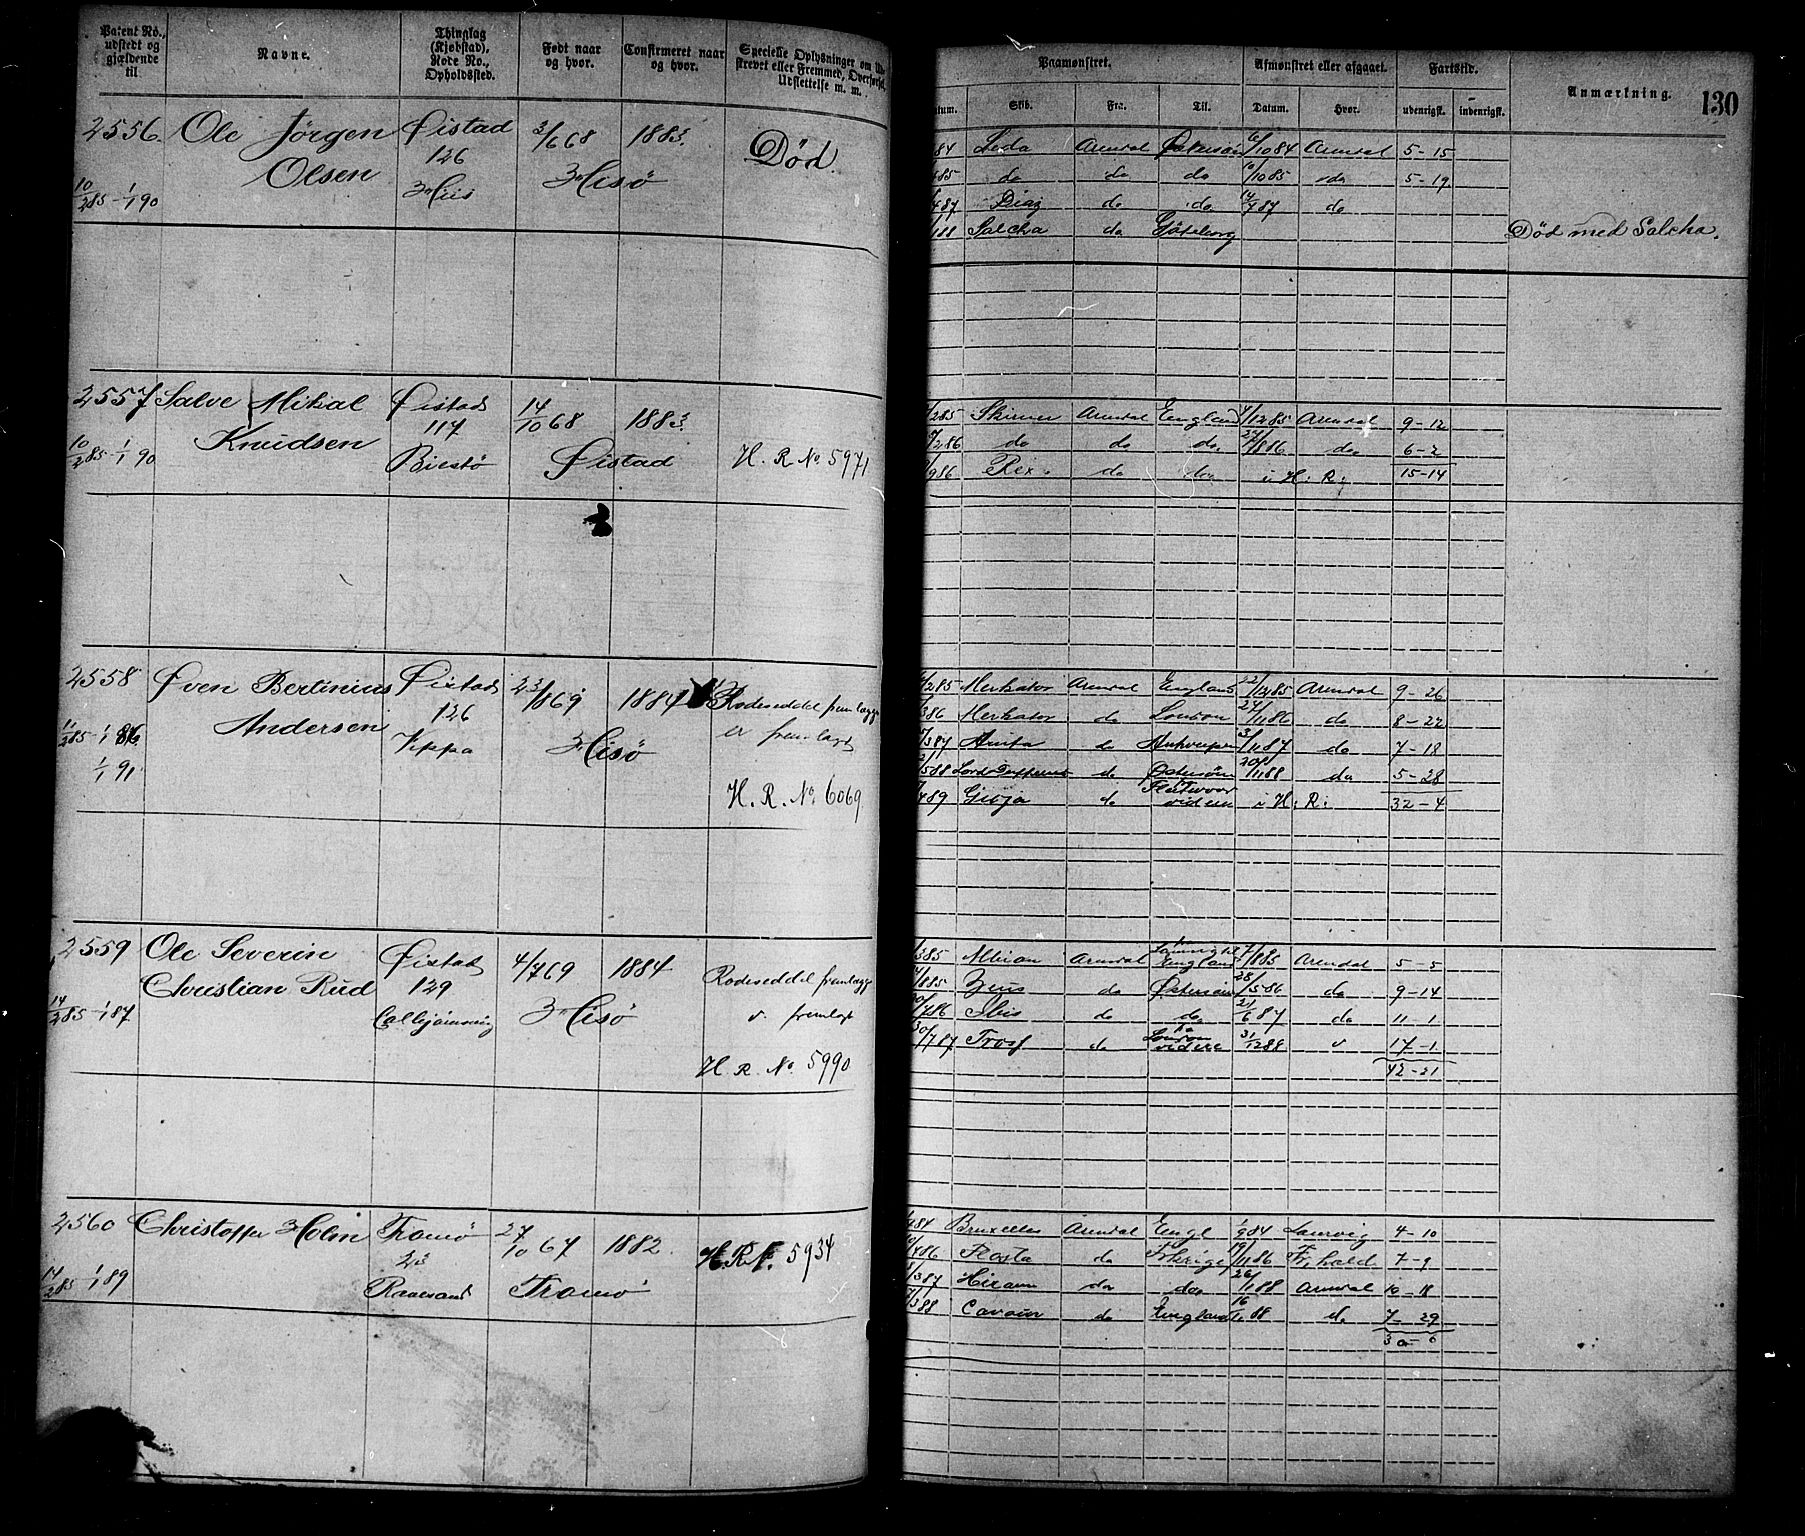 Patent No., udstedt og gjældende til
Navne.
Thinglag (Kjøbstad), Rode No., Opholdssted.
Født naar og hvor.
Confirmeret naar og hvor.
Specielle Oplysninger om
strevet eller Fremmed, Overførsel,
Udslettelse m. m.
2556. Ole Jørgen Øistad 3/6 68 1883.
Olsen 126 Hisö Død.
10/2 85 - 1/1 90 Hiis
2557 Salve Mikal Øistad 14/10 68 1883.
Knudsen 117
10/2 85 - 1/1 90 Biestø Øistad H. R No. 5971
2558 Sven Bertinius Øistad 23/8 69 1884 Rodeseddel fremlægges
Andersen 126 er fremlagt
11/2 85 - 1/1 86 Vippa Hisö
1/1 91 H. R. No. 6069
2559 Ole Severin Øistad 4/7 69 1884 Rodeseddel fremlægges
Christian Rud 129 Hisö v. fremlagt
14/2 85 - 1/1 87
H. R. No. 5990
2560 Christoffer Holm Tromö 27/10 67 1882. H. R. 5934
23
14/2 85 1/1 89 Tromö
Paamønstret.
Afmønstret eller afgaaet.
Fartstid.
Anmærkning.
130
Datum. Skib. Fra. Til. Datum. Hvor. udenrigst. indenrigst.
84 Leda Arendal Østersøen 6/10 84 Arendal 5-15
85 do do do /10 85 do 5-19
87 Diaz do do 87 do
88 Salcha do Göteborg Død med Salcha.
/2 85 Skirner Arendal England /12 85 Arendal 9-12
/2 86 do do do 27/8 86 do 6-2
/9 86 Rex. do do i H: R: 15-14
/2 85 Merkator Arendal England 22/12 85 Arendal 9-26
/3 86 Merkator do London 27/11 86 do 8-22
/3 87 Anita do Antwerpen 3/11 87 do 7-18
/5 88 do Østersøen 20/11 88 do 5-28
89 Gioja do Fleetwood videre i H: R: 32-4
/3 85 Albion Arendal England /8 85 Arendal 5-5
/8 85 Zeus do Østersøen 28/5 86 do 9-14
/7 86 Ibis do do 21/6 87 do 11-1
30/7 87 do London videre 31/12 88 17-1
42-21
84 Bruxelles Arendal Engl 1/9 84 Laurvig 4-10
86 do 19/11 86 Fr,hald 7-9
/3 87 Hiram do do 26/1 88 Arendal 10-18
/3 88 Cavour do England 16 88 do 7-29
30-6